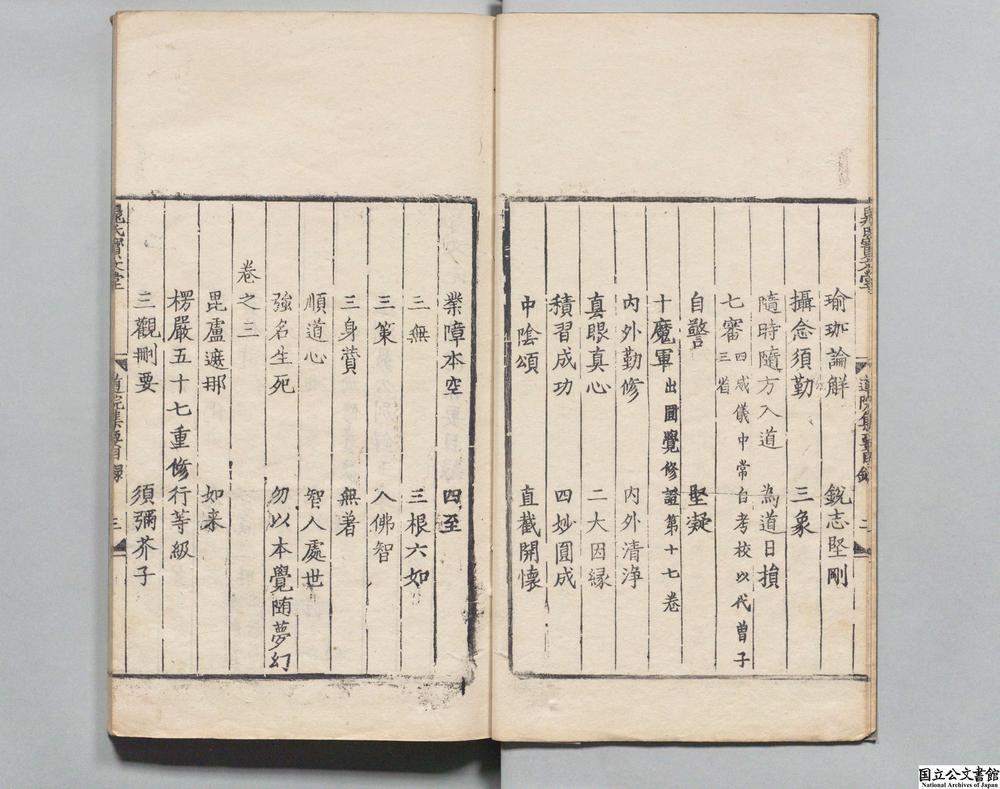 瑜珈論解 銳志堅剛
攝念須勤 三象
隨時隨方入道 為道日損
七審 四威儀中常自考校以代曾子三省
自警 堅疑
十魔軍 出圓覺修證第十七卷
內外勤修 內外清浄
真眼真心 二大因縁
積習成功 四妙圓成
中陰頌 直截開懷
道院集要目錄 二
業障本空 四至
三無 三根六如
三策 入佛智
三身讚 無著
順道心 智人處世
強名生死 勿以本覺随夢幻
卷之三
毘盧遮那 如来
楞嚴五十七重修行等級
三觀刪要 須彌芥子
晁氏寳文堂
道院集要目錄 三
国立公文書館
National Archives of Japan